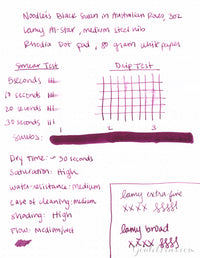 Noodler's Black Swan in Australian Roses, 3oz
Lamy All-Star, medium steel nib
Rhodia Dot pad, 80 gram white paper
Smear Test
Drip Test
5 seconds
10 seconds
20 seconds
30 seconds
Swabs:
1 2 3
Dry Time: ~ 30 seconds
Saturation: High
Water-resistance: medium
Ease of cleaning: medium
Shading: High
Flow: medium/wet
lamy extra-fine
xxxx
lamy broad
xxxx